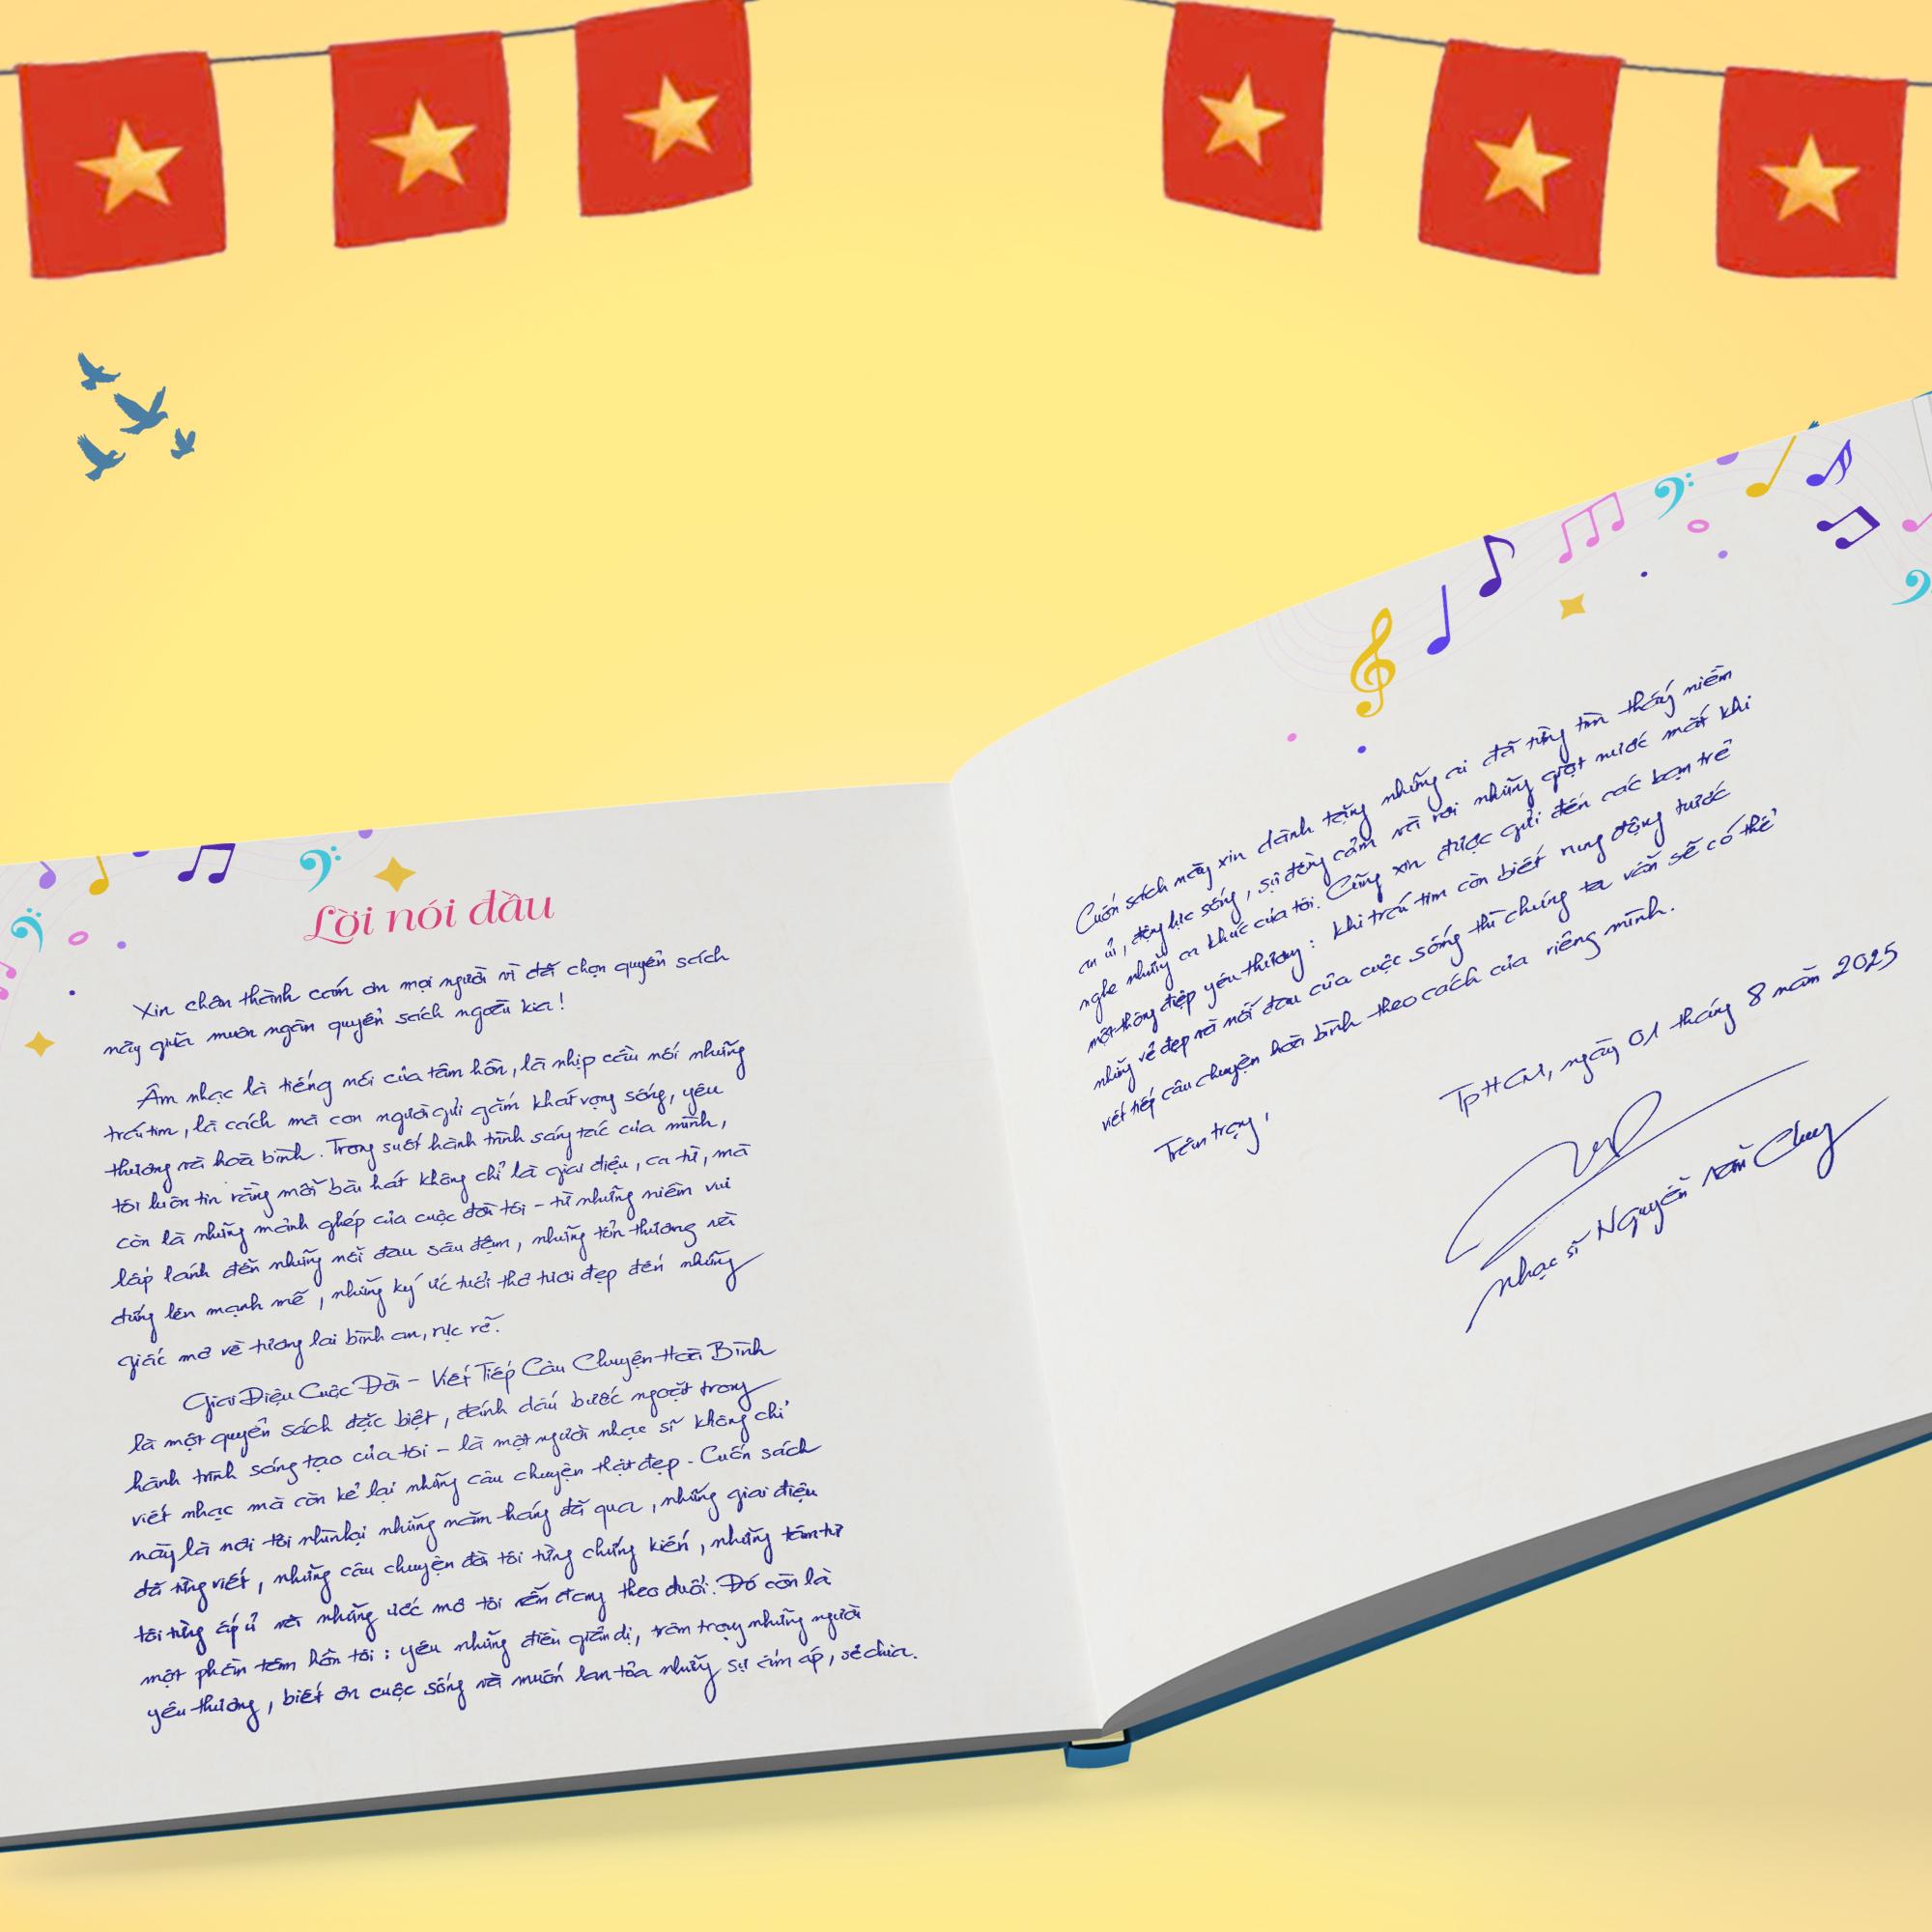 Lời nói đầu
Xin chân thành cám ơn mọi người vì đã chọn quyển sách
này giữa muôn ngàn quyển sách ngoài kia!
Âm nhạc là tiếng nói của tâm hồn, là nhịp cầu nối những
trái tim, là cách mà con người gửi gắm khát vọng sống, yêu
thương và hoà bình. Trong suốt hành trình sáng tác của mình,
tôi luôn tin rằng mỗi bài hát không chỉ là giai điệu, ca từ, mà
còn là những mảnh ghép của cuộc đời tôi – từ những niềm vui
lấp lánh đến những nỗi đau sâu đậm, những tổn thương và
đứng lên mạnh mẽ, những ký ức tuổi thơ tươi đẹp đến những
giấc mơ về tương lai bình an, rực rỡ.
Giai Điệu Cuộc Đời – Viết Tiếp Câu Chuyện Hoà Bình
là một quyển sách đặc biệt, đánh dấu bước ngoặt trong
hành trình sáng tạo của tôi – là một người nhạc sĩ không chỉ
viết nhạc mà còn kể lại những câu chuyện thật đẹp. Cuốn sách
này là nơi tôi nhìn lại những năm tháng đã qua, những giai điệu
đã từng viết, những câu chuyện đời tôi từng chứng kiến, những tâm tư
tôi từng ấp ủ và những ước mơ tôi vẫn đang theo đuổi. Đó còn là
một phần tâm hồn tôi: yêu những điều giản dị, trân trọng những người
yêu thương, biết ơn cuộc sống và muốn lan tỏa những sự ấm áp, sẻ chia.
Cuốn sách này xin dành tặng những ai đã từng tìm thấy niềm
an ủi, động lực sống, sự đồng cảm và rơi những giọt nước mắt khi
nghe những ca khúc của tôi. Cũng xin được gửi đến các bạn trẻ
một thông điệp yêu thương: khi trái tim còn biết rung động trước
những vẻ đẹp và nỗi đau của cuộc sống thì chúng ta vẫn sẽ có thể
viết tiếp câu chuyện hoà bình theo cách của riêng mình.
Trân trọng,
TpHCM, ngày 01 tháng 8 năm 2025
Nhạc sĩ Nguyễn Văn Chung